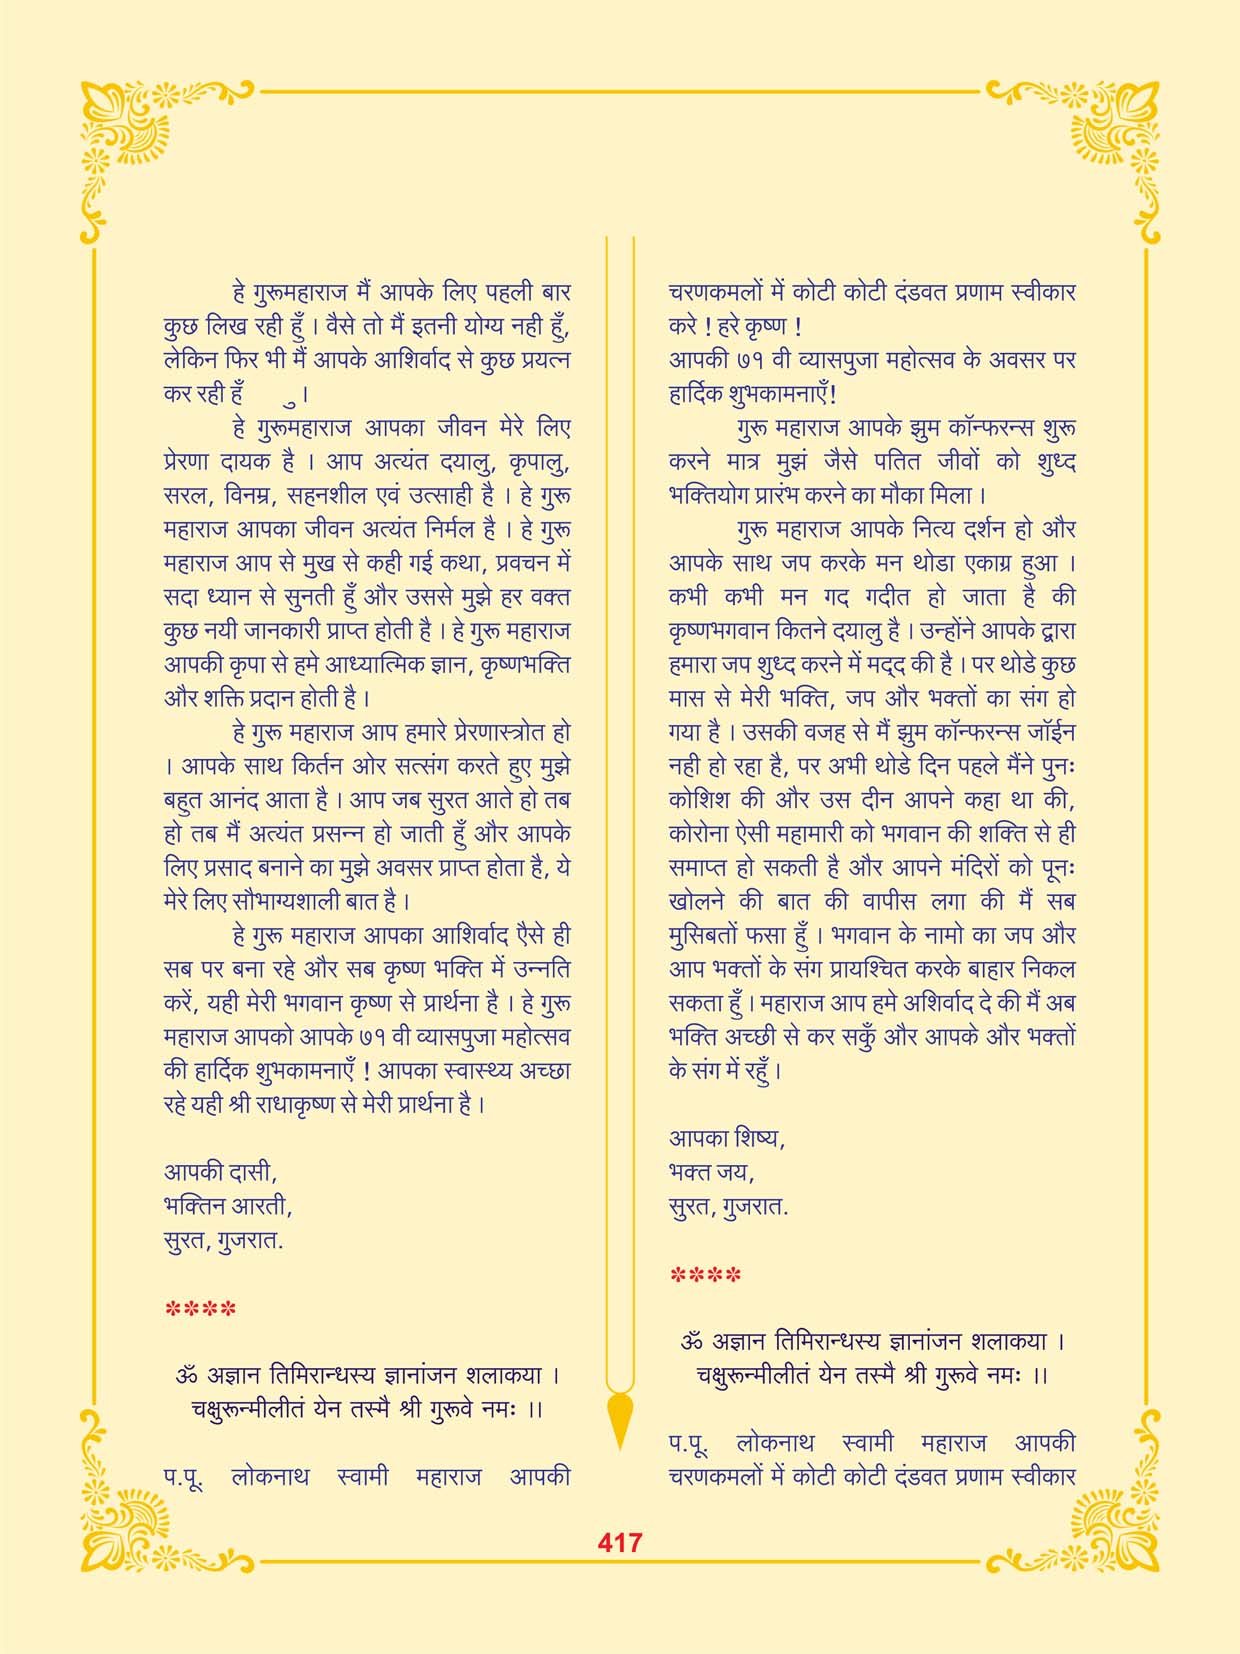 हे गुरूमहाराज मैं आपके लिए पहली बार
कुछ लिख रही हुँ । वैसे तो मैं इतनी योग्य नही हुँ,
लेकिन फिर भी मैं आपके आशिर्वाद से कुछ प्रयत्न
कर रही हँ ु ।
हे गुरूमहाराज आपका जीवन मेरे लिए
प्रेरणा दायक है । आप अत्यंत दयालु, कृपालु,
सरल, विनम्र, सहनशील एवं उत्साही है । हे गुरू
महाराज आपका जीवन अत्यंत निर्मल है । हे गुरू
महाराज आप से मुख से कही गई कथा, प्रवचन में
सदा ध्यान से सुनती हुँ और उससे मुझे हर वक्त
कुछ नयी जानकारी प्राप्त होती है । हे गुरू महाराज
आपकी कृपा से हमे आध्यात्मिक ज्ञान, कृष्णभक्ति
और शक्ति प्रदान होती है ।
हे गुरू महाराज आप हमारे प्रेरणास्त्रोत हो
। आपके साथ किर्तन ओर सत्संग करते हुए मुझे
बहुत आनंद आता है । आप जब सुरत आते हो तब
हो तब मैं अत्यंत प्रसन्न हो जाती हुँ और आपके
लिए प्रसाद बनाने का मुझे अवसर प्राप्त होता है, ये
मेरे लिए सौभाग्यशाली बात है ।
हे गुरू महाराज आपका आशिर्वाद ऐसे ही
सब पर बना रहे और सब कृष्ण भक्ति में उन्नति
करें, यही मेरी भगवान कृष्ण से प्रार्थना है । हे गुरू
महाराज आपको आपके ७१ वी व्यासपुजा महोत्सव
की हार्दिक शुभकामनाएँ ! आपका स्वास्थ्य अच्छा
रहे यही श्री राधाकृष्ण से मेरी प्रार्थना है ।
आपकी दासी,
भक्तिन आरती,
सुरत, गुजरात.
****
ॐ अज्ञान तिमिरान्धस्य ज्ञानांजन शलाकया ।
चक्षुरून्मीलीतं येन तस्मै श्री गुरूवे नमः ।।
प.पू. लोकनाथ स्वामी महाराज आपकी
चरणकमलों में कोटी कोटी दंडवत प्रणाम स्वीकार
करे ! हरे कृष्ण !
आपकी ७१ वी व्यासपुजा महोत्सव के अवसर पर
हार्दिक शुभकामनाएँ!
गुरू महाराज आपके झुम कॉन्फरन्स शुरू
करने मात्र मुझं जैसे पतित जीवों को शुध्द
भक्तियोग प्रारंभ करने का मौका मिला ।
गुरू महाराज आपके नित्य दर्शन हो और
आपके साथ जप करके मन थोडा एकाग्र हुआ ।
कभी कभी मन गद गदीत हो जाता है की
कृष्णभगवान कितने दयालु है । उन्होंने आपके द्वारा
हमारा जप शुध्द करने में मद्द की है । पर थोडे कुछ
मास से मेरी भक्ति, जप और भक्तों का संग हो
गया है । उसकी वजह से मैं झुम कॉन्फरन्स जॉईन
नही हो रहा है, पर अभी थोडे दिन पहले मैंने पुनः
कोशिश की और उस दीन आपने कहा था की,
कोरोना ऐसी महामारी को भगवान की शक्ति से ही
समाप्त हो सकती है और आपने मंदिरों को पूनः
खोलने की बात की वापीस लगा की मैं सब
मुसिबतों फसा हुँ । भगवान के नामो का जप और
आप भक्तों के संग प्रायश्चित करके बाहार निकल
सकता हुँ । महाराज आप हमे अशिर्वाद दे की मैं अब
भक्ति अच्छी से कर सकुँ और आपके और भक्तों
के संग में रहुँ ।
आपका शिष्य,
भक्त जय,
सुरत, गुजरात.
****
ॐ अज्ञान तिमिरान्धस्य ज्ञानांजन शलाकया ।
चक्षुरून्मीलीतं येन तस्मै श्री गुरूवे नमः ।।
प.पू. लोकनाथ स्वामी महाराज आपकी
चरणकमलों में कोटी कोटी दंडवत प्रणाम स्वीकार
417